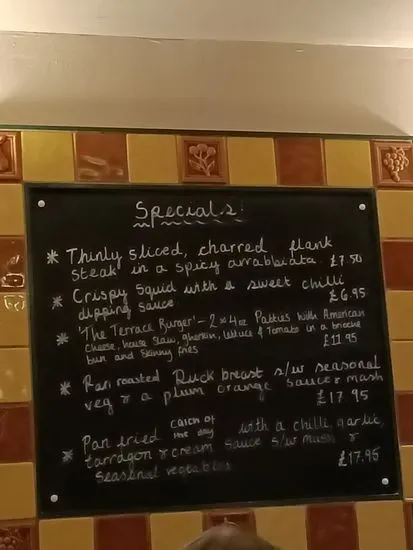 Specials!
* Thinly sliced, charred flank
steak in a spicy arrabbiata. £7.50
* Crispy squid with a sweet chilli
dipping sauce £6.95
* 'The Terrace Burger' - 2 x 4oz Patties with American
cheese, house slaw, gherkin, lettuce & Tomato in a brioche
bun and skinny fries £11.95
* Pan roasted Duck breast s/w seasonal
veg & a plum orange sauce & mash
£17.95
* Pan fried catch of the day with a chilli, garlic,
tarragon & cream sauce s/w mash &
seasonal vegetables £17.95